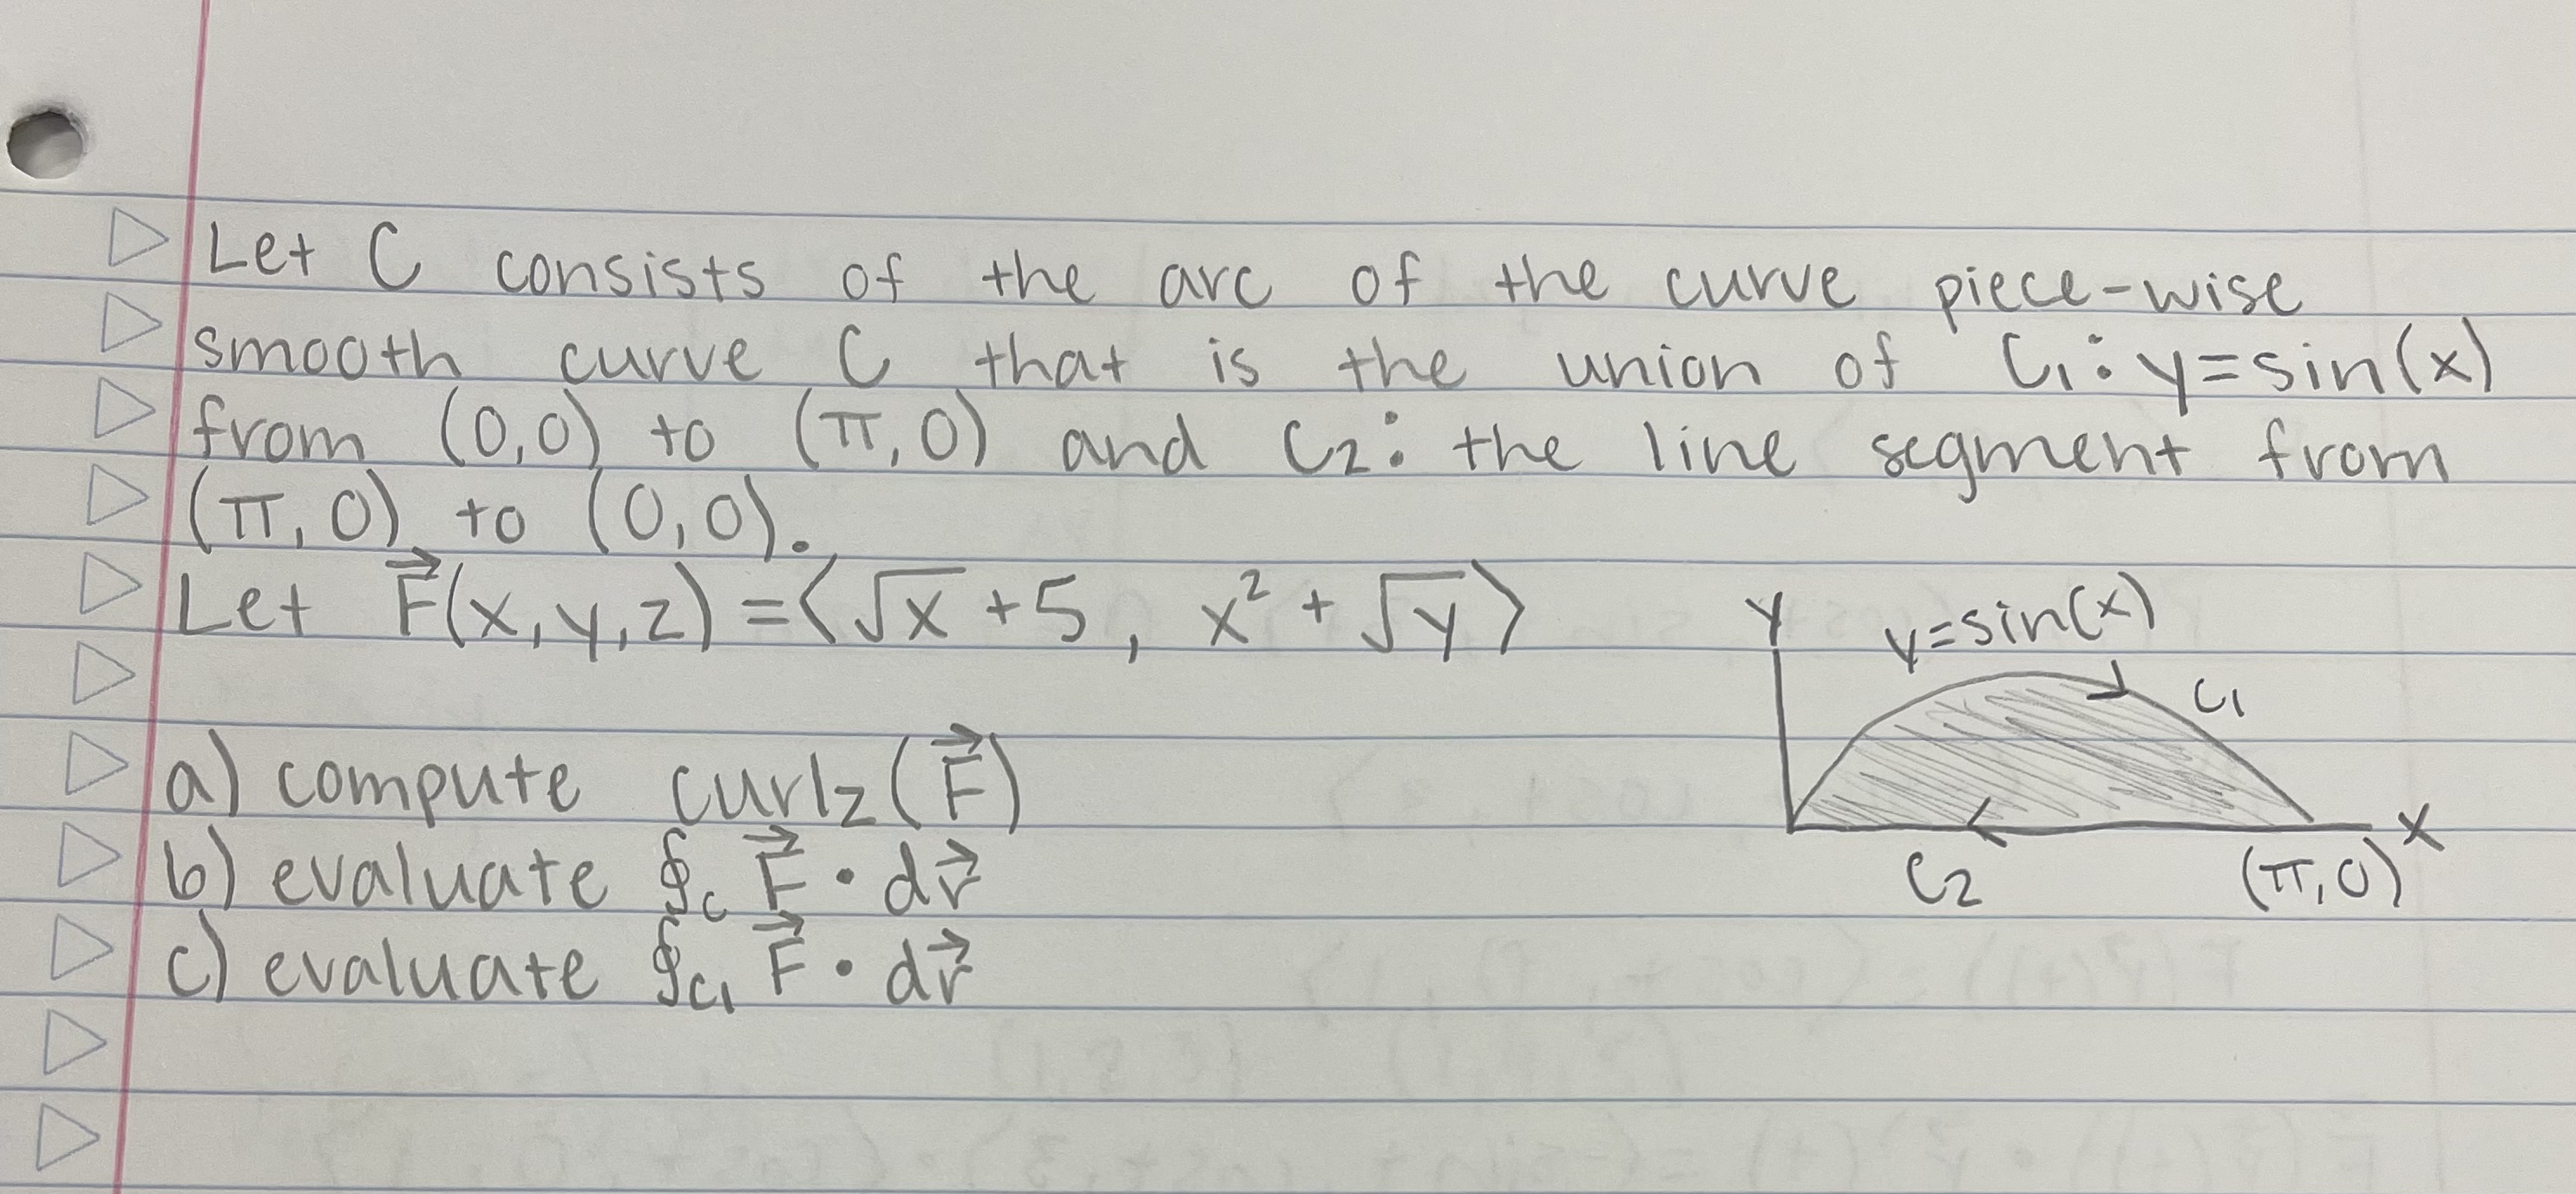 Let C consists of the arc of the curve piece-wise
smooth curve C that is the union of C₁: y=sin(x)
from (0,0) to (π,0) and C₂: the line segment from
(π,0) to (0,0).
Let F⃗(x,y,z) = ⟨√x + 5, x² + √y⟩
y
y=sin(x)
C₁
x
C₂
(π,0)
a) compute curl_z(F⃗)
b) evaluate ∮_C F⃗ • dr⃗
c) evaluate ∮_C₁ F⃗ • dr⃗